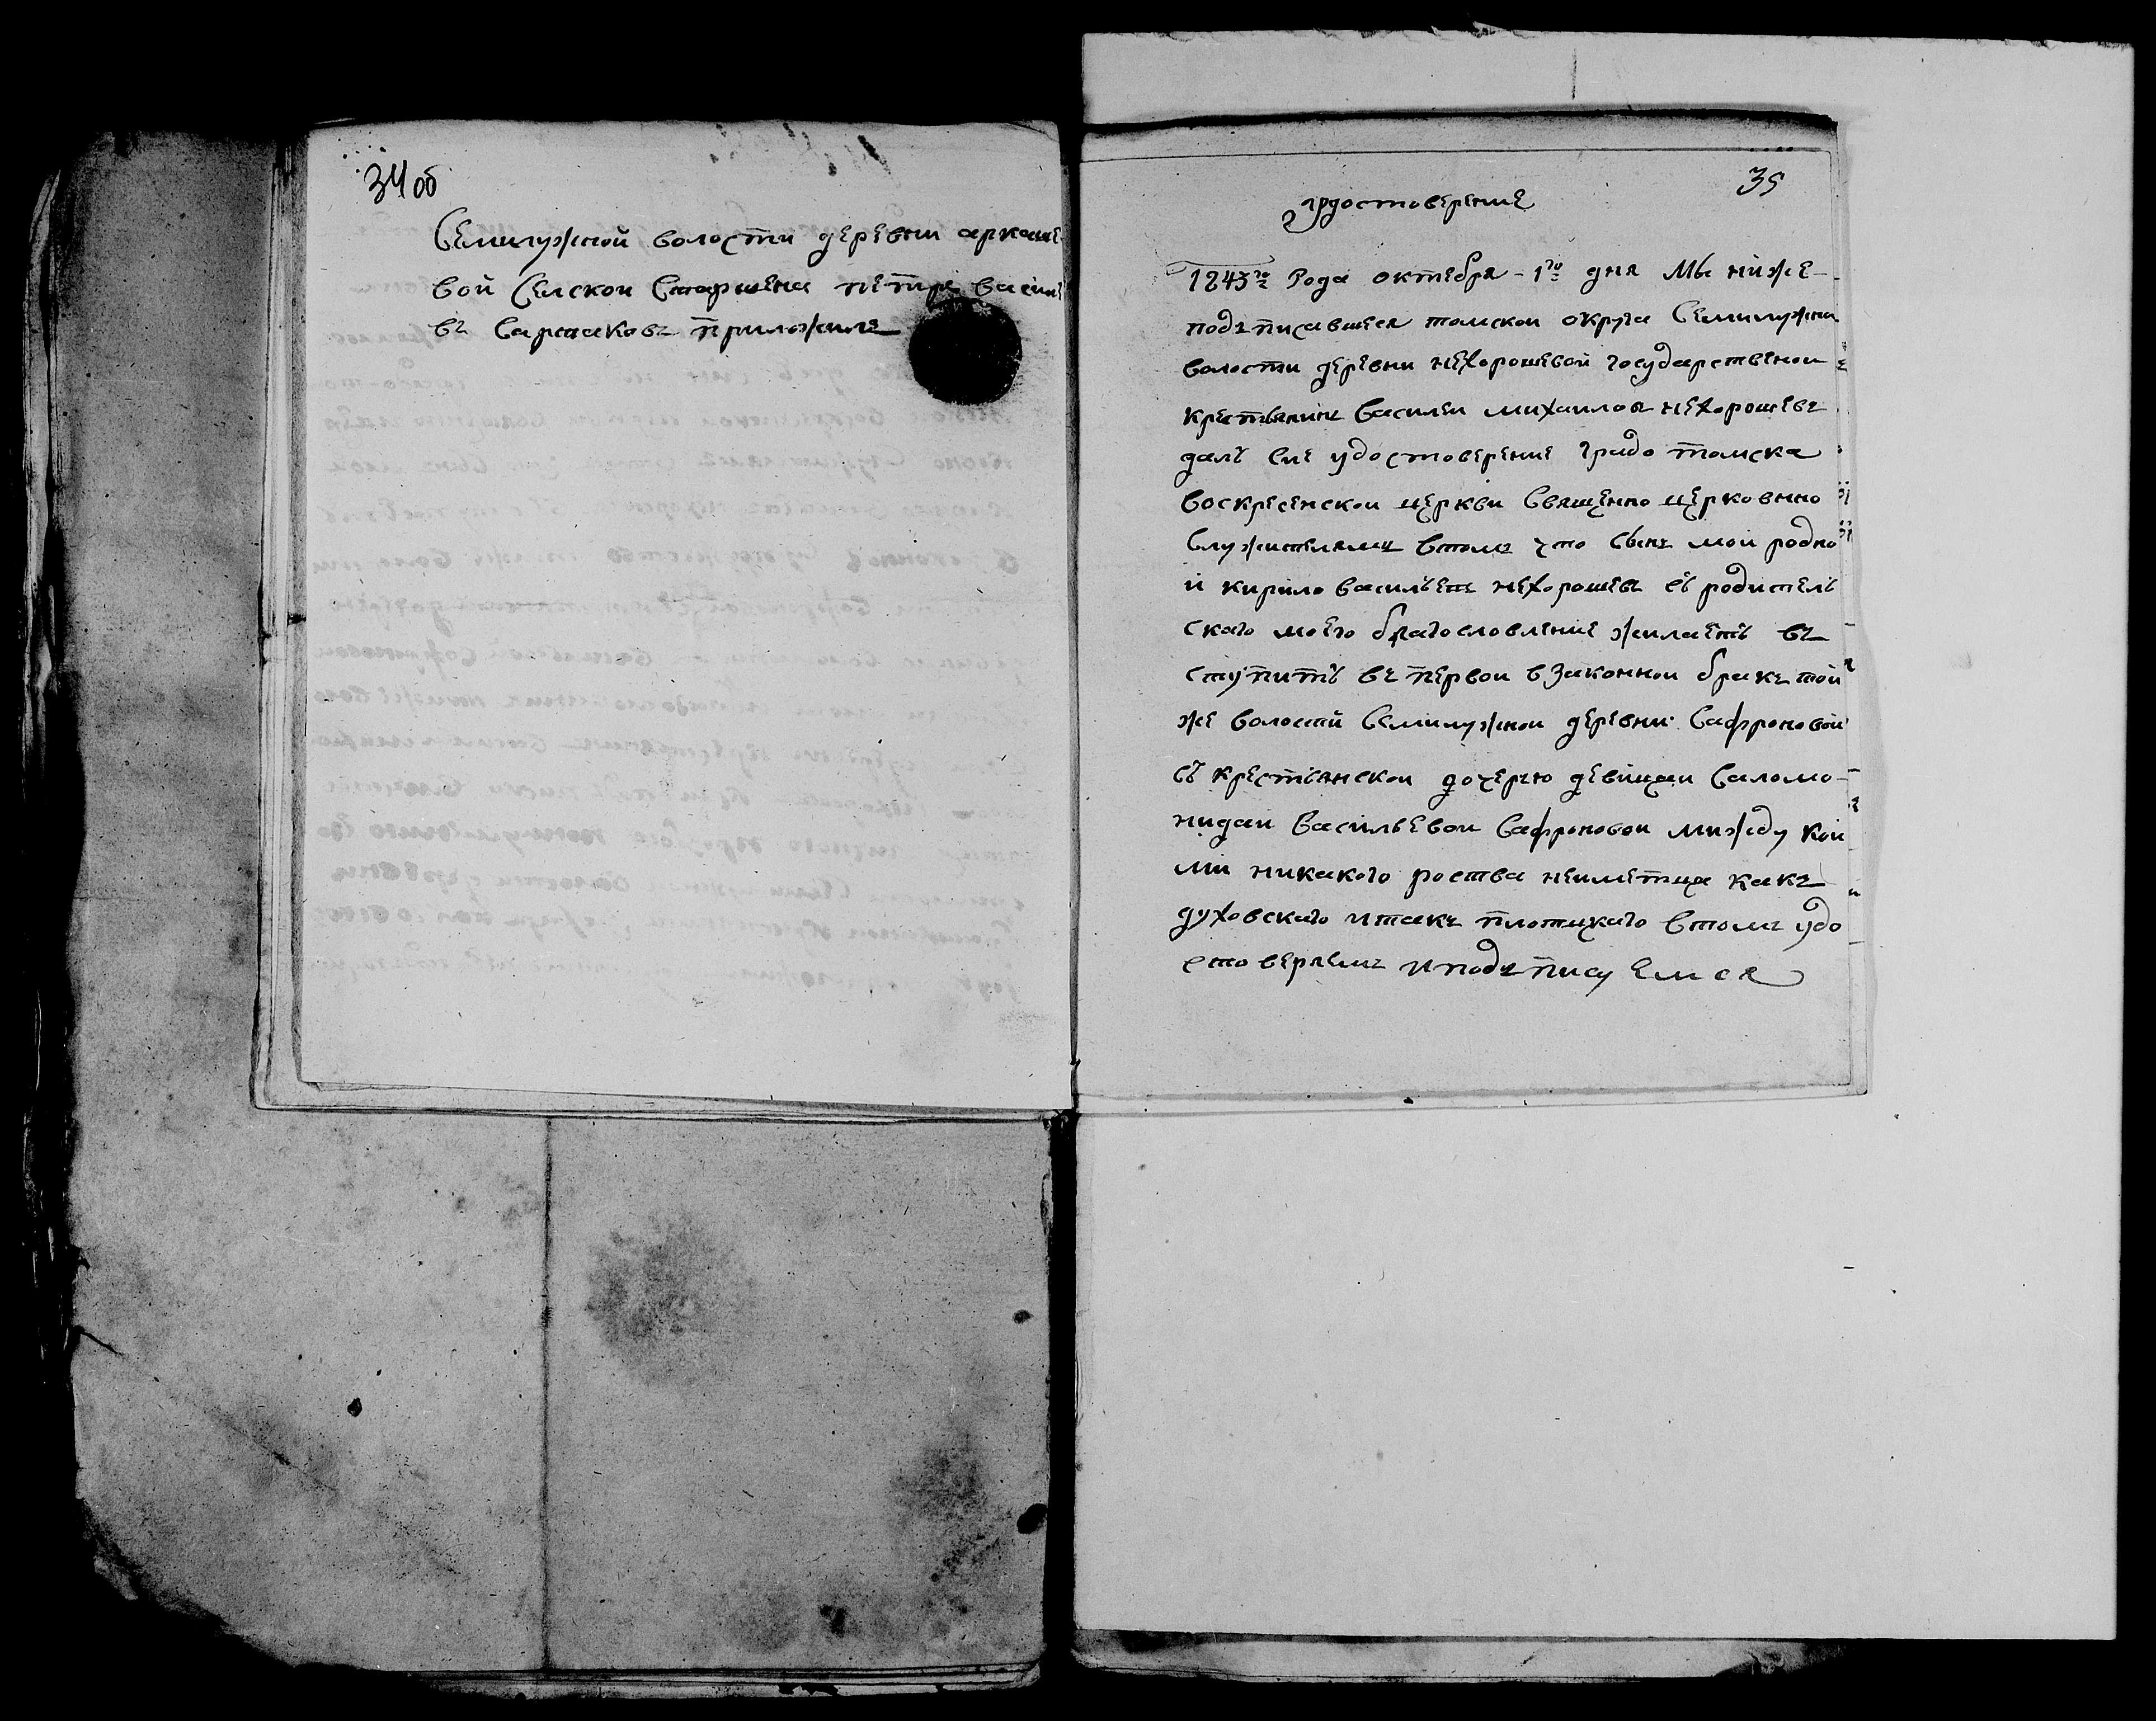 34 об
Семилужной волости деревни аркаше
вой Селскои Старшена петръ васил
въ Сарпаковъ приложилъ
35
удостоверение
1843го Года октебря - 1го дня Мы ниже-
подъписавшеея томскои округа Семилужнои
волости деревни нехорошевой государственои
крестьянинъ василеи михаиловъ нехорошевъ
далъ сие удостоверение градо томска
воскресенскои церкви Священно церковнно
служителямъ втомъ что сынъ мои родно
й кирило васильевъ нехорошевъ съ родитель
скаго моего благословление жилаетъ въ
ступить въ первои взаконнои бракъ той
же волостй Семилужнои деревни Сафроновой
съ крестьянскои дочерью девицаи Саломо-
нидаи Васильевои Сафроновои между кои
ми никакого роства неиметца какъ
духовскаго итакъ плотцкаго втомъ удо
стоверяемъ иподъписуемся